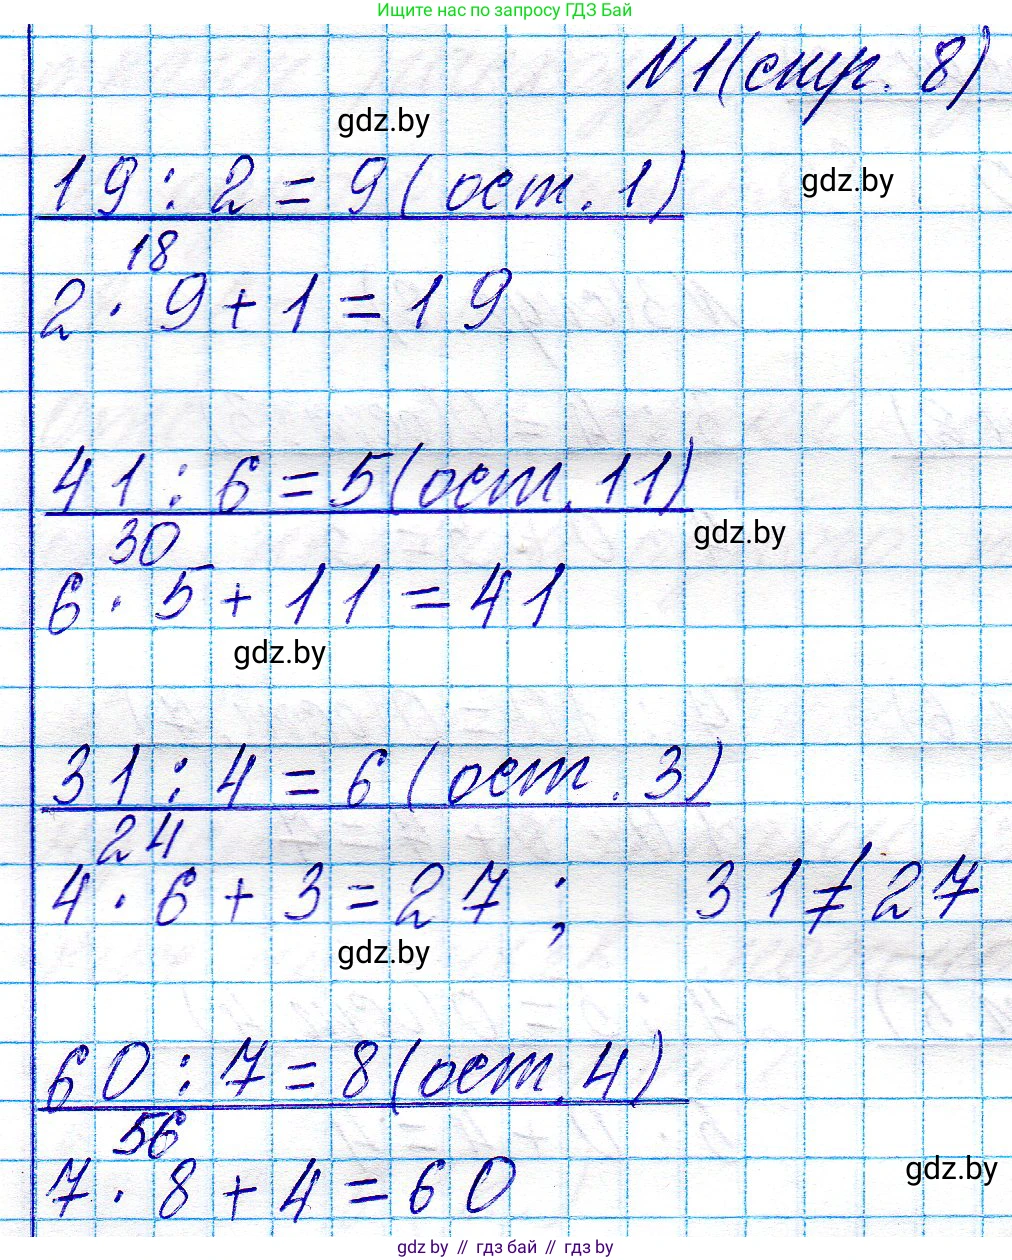 Ищите нас по запросу ГДЗ Бай
№1(стр. 8)
gdz.by
19 : 2 = 9 (ост. 1)
gdz.by
18
2 · 9 + 1 = 19
41 : 6 = 5 (ост. 11)
30
gdz.by
6 · 5 + 11 = 41
gdz.by
31 : 4 = 6 (ост. 3)
24
4 · 6 + 3 = 27 ; 31 ≠ 27
gdz.by
60 : 7 = 8 (ост. 4)
56
gdz.by
7 · 8 + 4 = 60
gdz by // гдз бай // gdz by